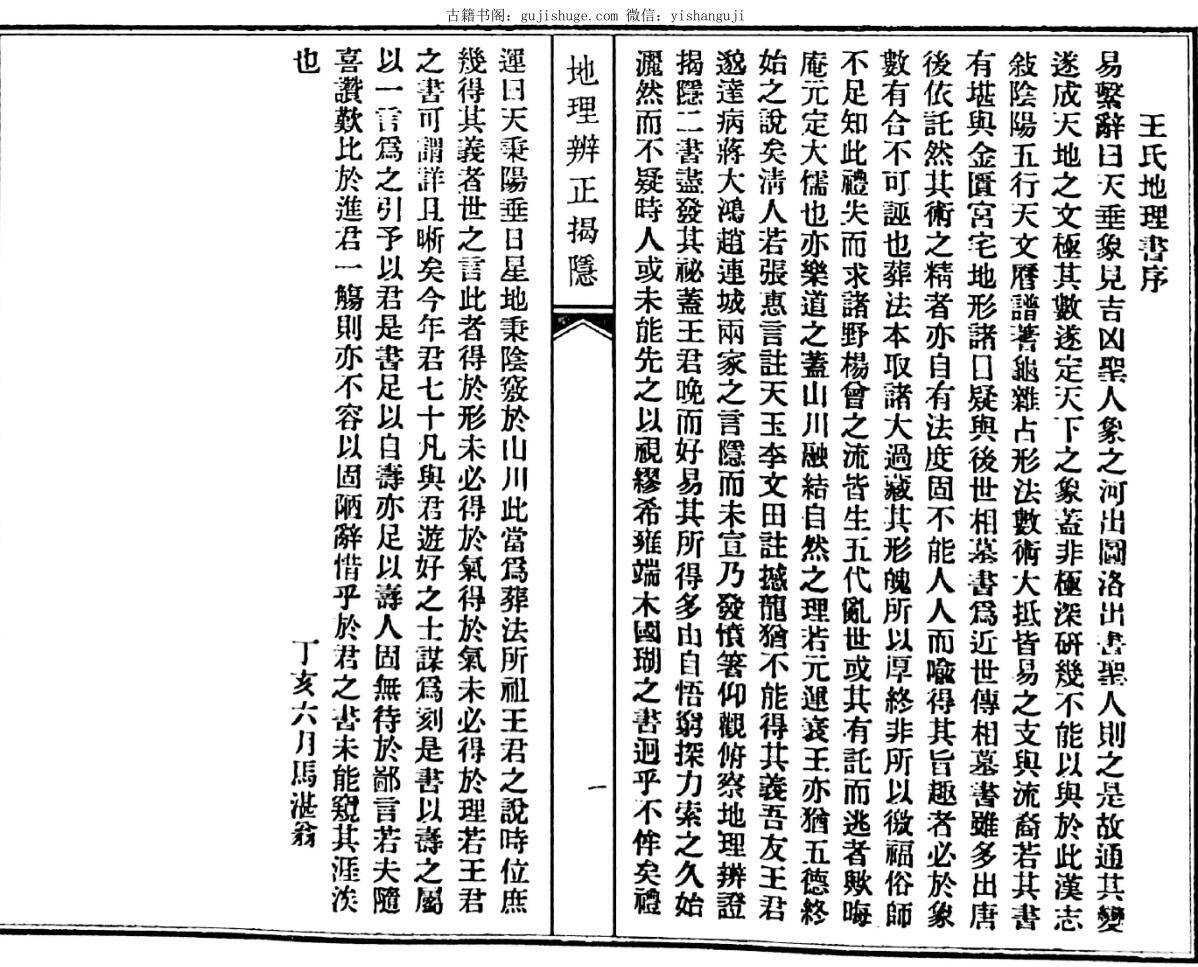 古籍书阁：gujishuge.com 微信：yishanguji
王氏地理書序
易繫辭曰天垂象見吉凶聖人象之河出圖洛出書聖人則之是故通其變
遂成天地之文極其數遂定天下之象蓋非極深硏幾不能以與於此漢志
敍陰陽五行天文曆譜蓍龜雜占形法數術大抵皆易之支與流裔若其書
有堪輿金匱宮宅地形諸目疑與後世相墓書爲近世傳相墓書雖多出唐
後依託然其術之精者亦自有法度固不能人人而喩得其旨趣者必於象
數有合不可誣也葬法本取諸大過藏其形魄所以厚終非所以徼福俗師
不足知此禮失而求諸野楊曾之流皆生五代亂世或其有託而逃者歟晦
庵元定大儒也亦樂道之蓋山川融結自然之理若元運衰王亦猶五德終
始之說矣淸人若張惠言註天玉李文田註撼龍猶不能得其義吾友王君
邈達病蔣大鴻趙連城兩家之言隱而未宣乃發憤箸仰觀俯察地理辨證
揭隱二書盡發其祕蓋王君晚而好易其所得多由自悟窮探力索之久始
灑然而不疑時人或未能先之以視繆希雍端木國瑚之書迥乎不侔矣禮
地理辨正揭隱
一
運曰天秉陽垂日星地秉陰竅於山川此當爲葬法所祖王君之說時位庶
幾得其義者世之言此者得於形未必得於氣得於氣未必得於理若王君
之書可謂詳且晰矣今年君七十凡與君遊好之士謀爲刻是書以壽之屬
以一言爲之引予以君是書足以自壽亦足以壽人固無待於鄙言若夫隨
喜讚歎比於進君一觴則亦不容以固陋辭惜乎於君之書未能窺其涯涘
也
丁亥六月馬湛翁